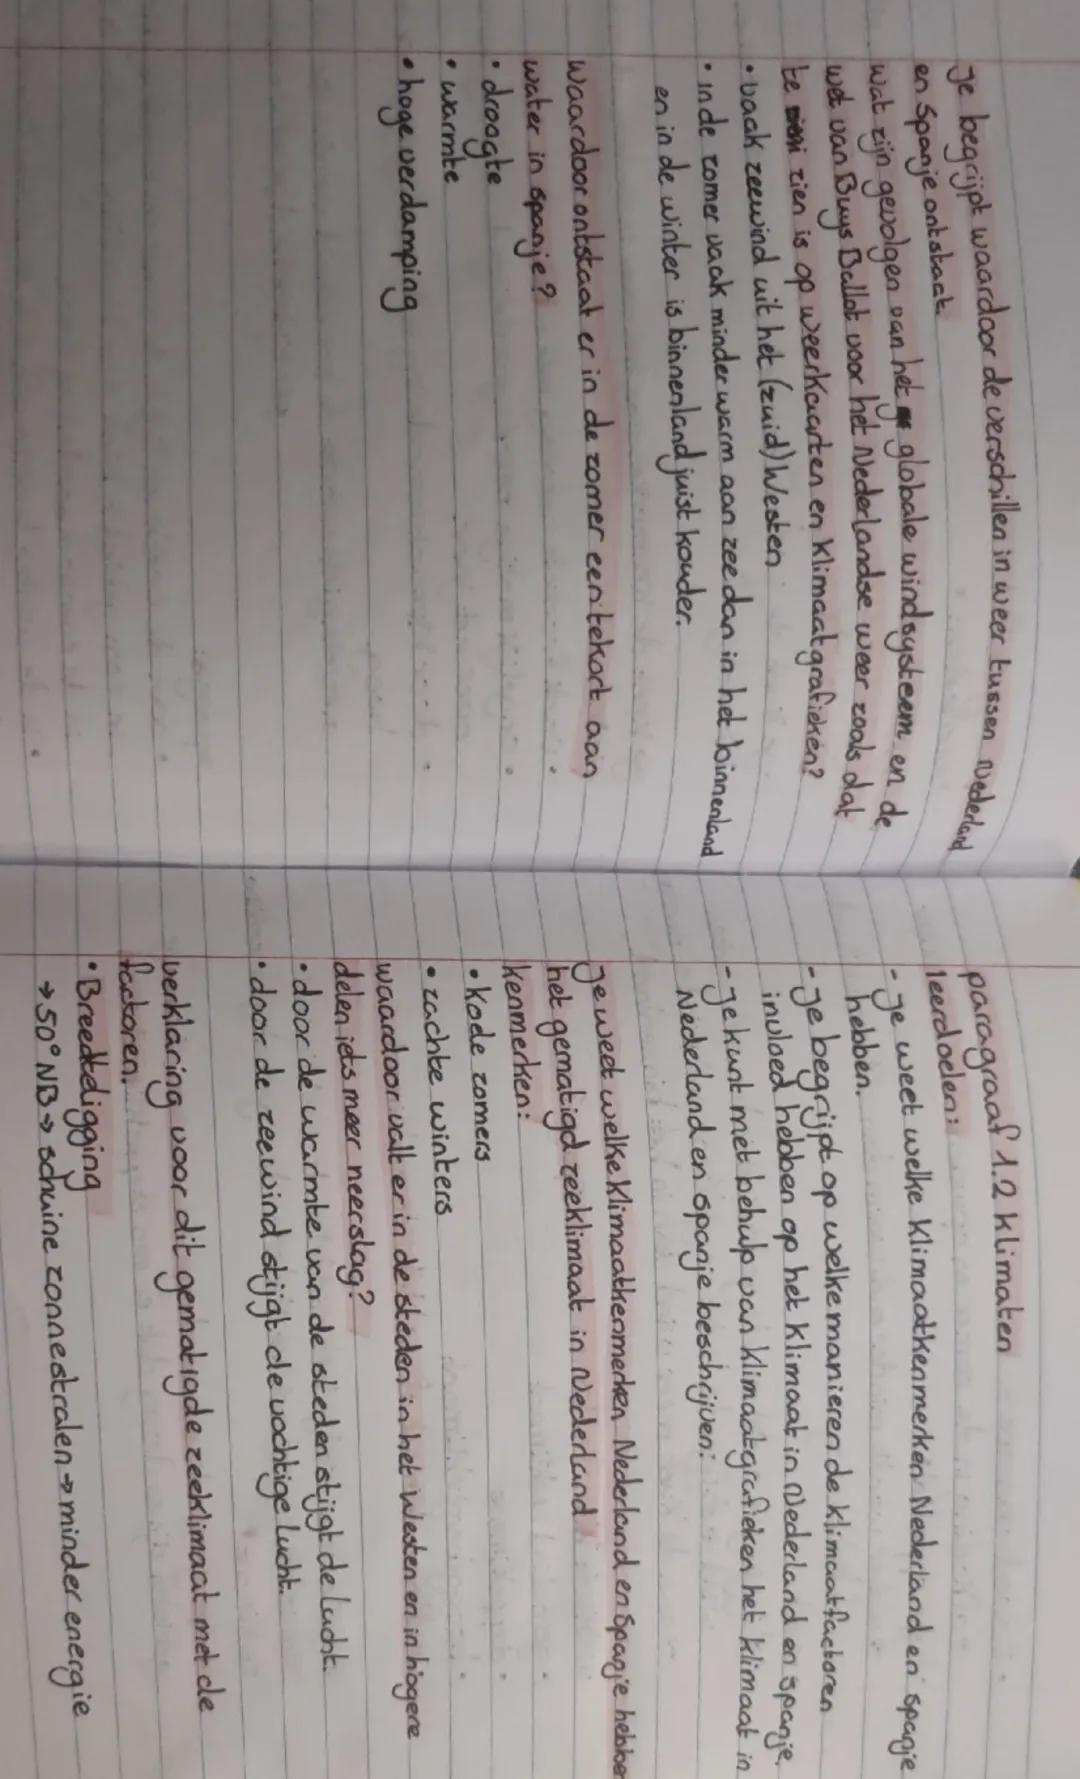 Je begrijpt waardoor de verschillen in weer tussen Nederland
en Spanje ontstaat.
wat zijn gevolgen van het globale windsysteem en de
wet van Buys Ballot voor het Nederlandse weer zoals dat
te zien is op weerkaarten en klimaatgrafieken?
• vaak zeewind uit het (zuid)Westen
• in de zomer vaak minder warm aan zee dan in het binnenland
en in de winter is binnenland juist kouder.
waardoor ontstaat er in de zomer een tekort aan
water in spanje?
• droogte
• warmte
• hoge verdamping
paragraaf 1.2 klimaten
leerdoelen:
- je weet welke klimaatkenmerken Nederland en spanje
hebben.
- je begrijpt op welke manieren de klimaatfactoren
invloed hebben op het klimaat in Nederland en spanje.
- je kunt met behulp van klimaatgrafieken het klimaat in
Nederland en spanje beschrijven:
Je weet welke klimaatkenmerken Nederland en Spanje hebben
het gematigd zeeklimaat in Nederland
kenmerken:
• koele zomers
• zachte winters
waardoor valt er in de steden in het Westen en in hogere
delen iets meer neerslag?
• door de warmte van de steden stijgt de lucht.
• door de zeewind stijgt de vochtige lucht.
verklaring voor dit gematigde zeeklimaat met de
factoren.
• Breedtedigging
→ 50° NB → schuine zonnestralen → minder energie